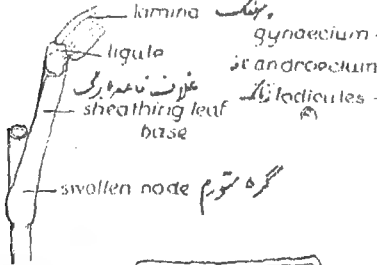 lamina
ligule
غلاف قاعدہ برگی
sheathing leaf
base
swollen node گرہ متورم
gynaecium
androecium
lodicules